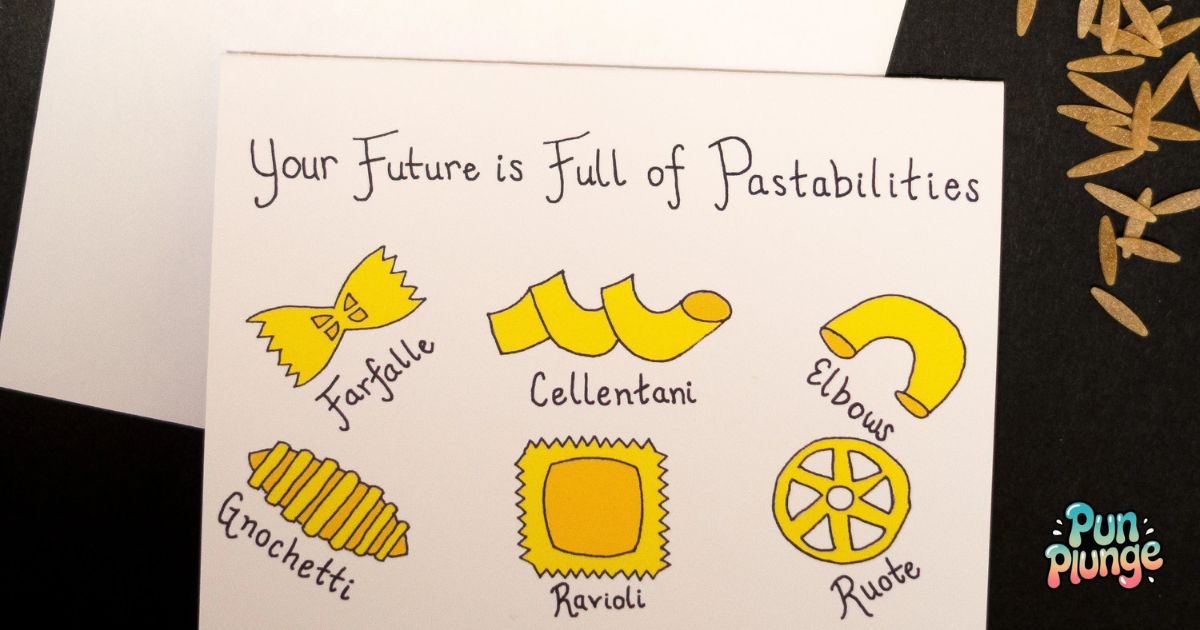 Your Future is Full of Pastabilities
Farfalle
Cellentani
Elbows
Gnochetti
Ravioli
Ruote
Pun
Plunge